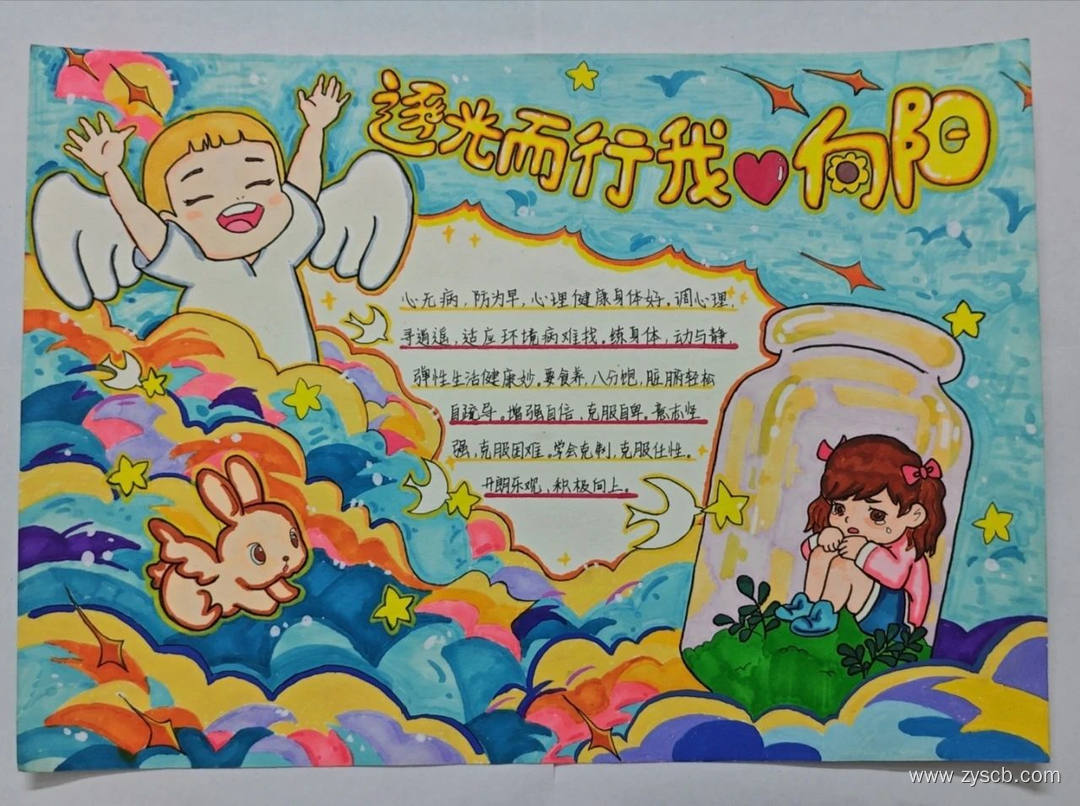 逐光而行我❤向阳
心无病，防为早，心理健康身体好。调心理，
寻逍遥，适应环境病难找。练身体，动与静，
弹性生活健康妙。要食养，八分饱，脏腑轻松
自疏导。增强自信，克服自卑。意志坚
强，克服困难。学会克制，克服任性。
开朗乐观，积极向上。
www.zyscb.com